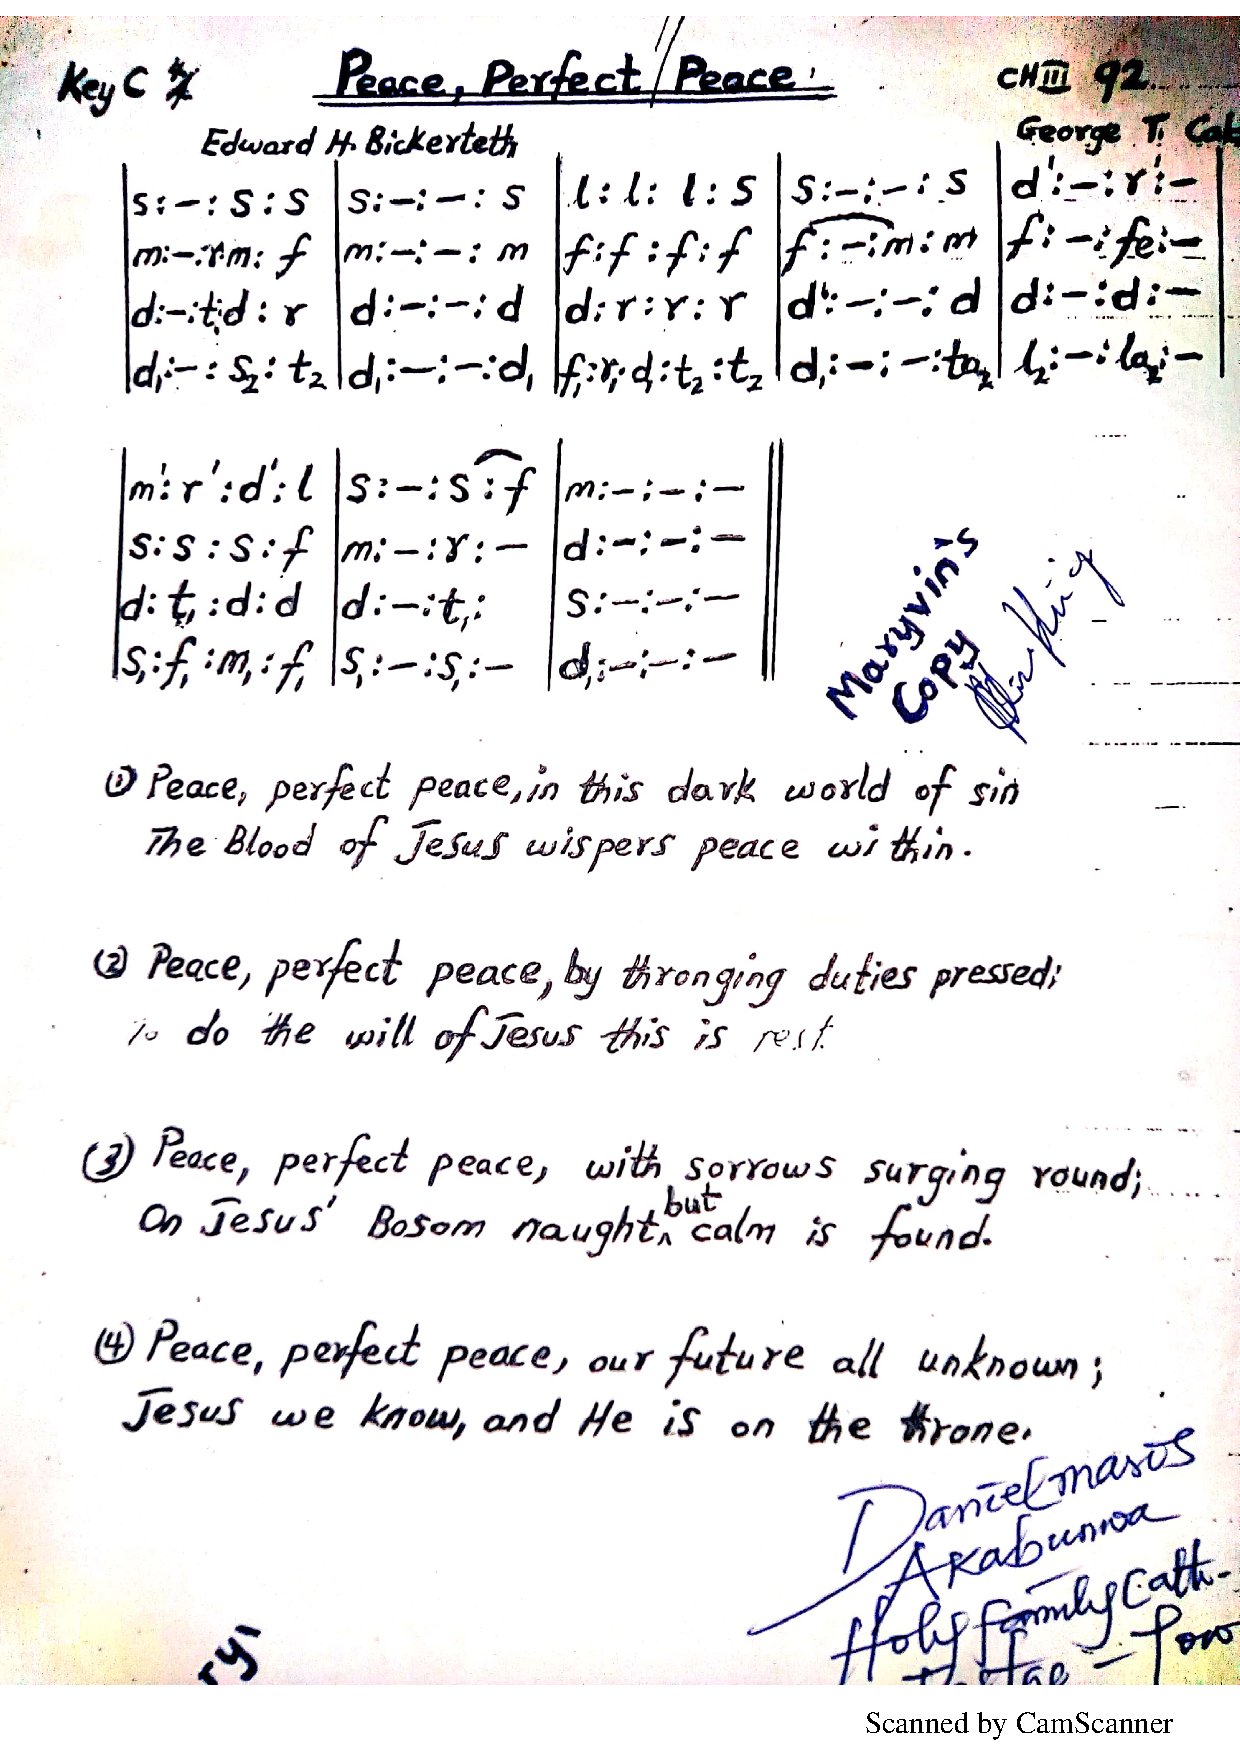 Key C 4/4 Peace, Perfect Peace. CH III 92
Edward H. Bickerteth George T. Cal
| s:-:s:s | s:-:-:s | l:l:l:s | s:-:-:s | d':-:r':- |
| m:-:r.m:f | m:-:-:m | f:f:f:f | f:-:m:m | f:-:fe:- |
| d:-:t₁d:r | d:-:-:d | d:r:r:r | d:-:-:d | d:-:d:- |
| d₁:-:s₂:t₂ | d₁:-:-:d₁ | f₁:r₁:d₁:t₂:t₂ | d₁:-:-:ta₂ | l₂:-:la₂:- |
| m':r':d':l | s:-:s:f | m:-:-:- ||
| s:s:s:f | m:-:r:- | d:-:-:- ||
| d:t₁:d:d | d:-:t₁: | s:-:-:- ||
| s₁:f₁:m₁:f₁ | s₁:-:s₁:- | d₁:-:-:- ||
Maryvin's
Copy
(1) Peace, perfect peace, in this dark world of sin
The Blood of Jesus wispers peace within.
(2) Peace, perfect peace, by thronging duties pressed;
To do the will of Jesus this is rest
(3) Peace, perfect peace, with sorrows surging round;
On Jesus' Bosom naught but calm is found.
(4) Peace, perfect peace, our future all unknown;
Jesus we know, and He is on the throne.
Daniel marius
Akabunwa
Holy family Cath-
ry,
Scanned by CamScanner